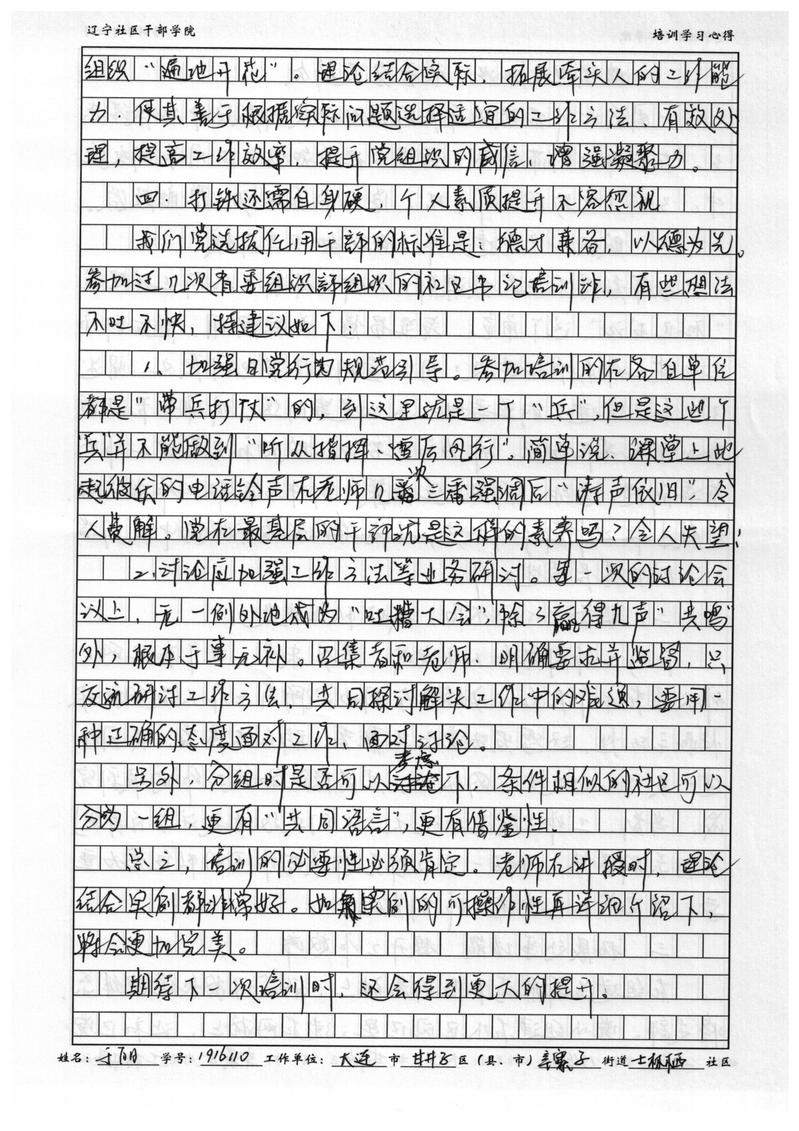 辽宁社区干部学院 培训学习心得
组织“遍地开花”。理论结合实际，拓展牵头人的工作能
力，使其善于根据实际问题选择适宜的工作方法，有效处
理，提高工作效率，提升党组织的威信，增强凝聚力。
四、打铁还需自身硬，个人素质提升不容忽视
我们党选拔任用干部的标准是：德才兼备，以德为先。
参加过几次省委组织部组织的社区书记培训班，有些想法
不吐不快，提建议如下：
1、加强日常行为规范引导。参加培训的在各自单位
都是“带兵打仗”的，到这里就是一个“兵”，但是这些个
“兵”并不能做到“听从指挥、雷厉风行”，简单说，课堂上此
起彼伏的电话铃声在老师几次三番强调后“涛声依旧”令
人费解。党在最基层的干部就是这样的素养吗？令人失望！
2、讨论应加强工作方法等业务研讨。第一次的讨论会
以上，无一例外地成为“吐槽大会”，除了赢得几声“共鸣”
外，根本于事无补。召集者和老师，明确要求并监督，只
交流研讨工作方法，共同探讨解决工作中的难题；要用一
种正确的态度面对工作，面对讨论。
另外，分组时是否可以考虑下，条件相似的社区可以
分为一组，更有“共同语言”，更有借鉴性。
总之，培训的必要性必须肯定。老师在讲授时，理论
结合实例都非常好。如果案例的可操作性再详细介绍下，
将会更加完美。
期待下一次培训时，还会得到更大的提升。
姓名：于丽 学号：1916110 工作单位：大连市甘井子区（县、市）辛寨子街道 社区